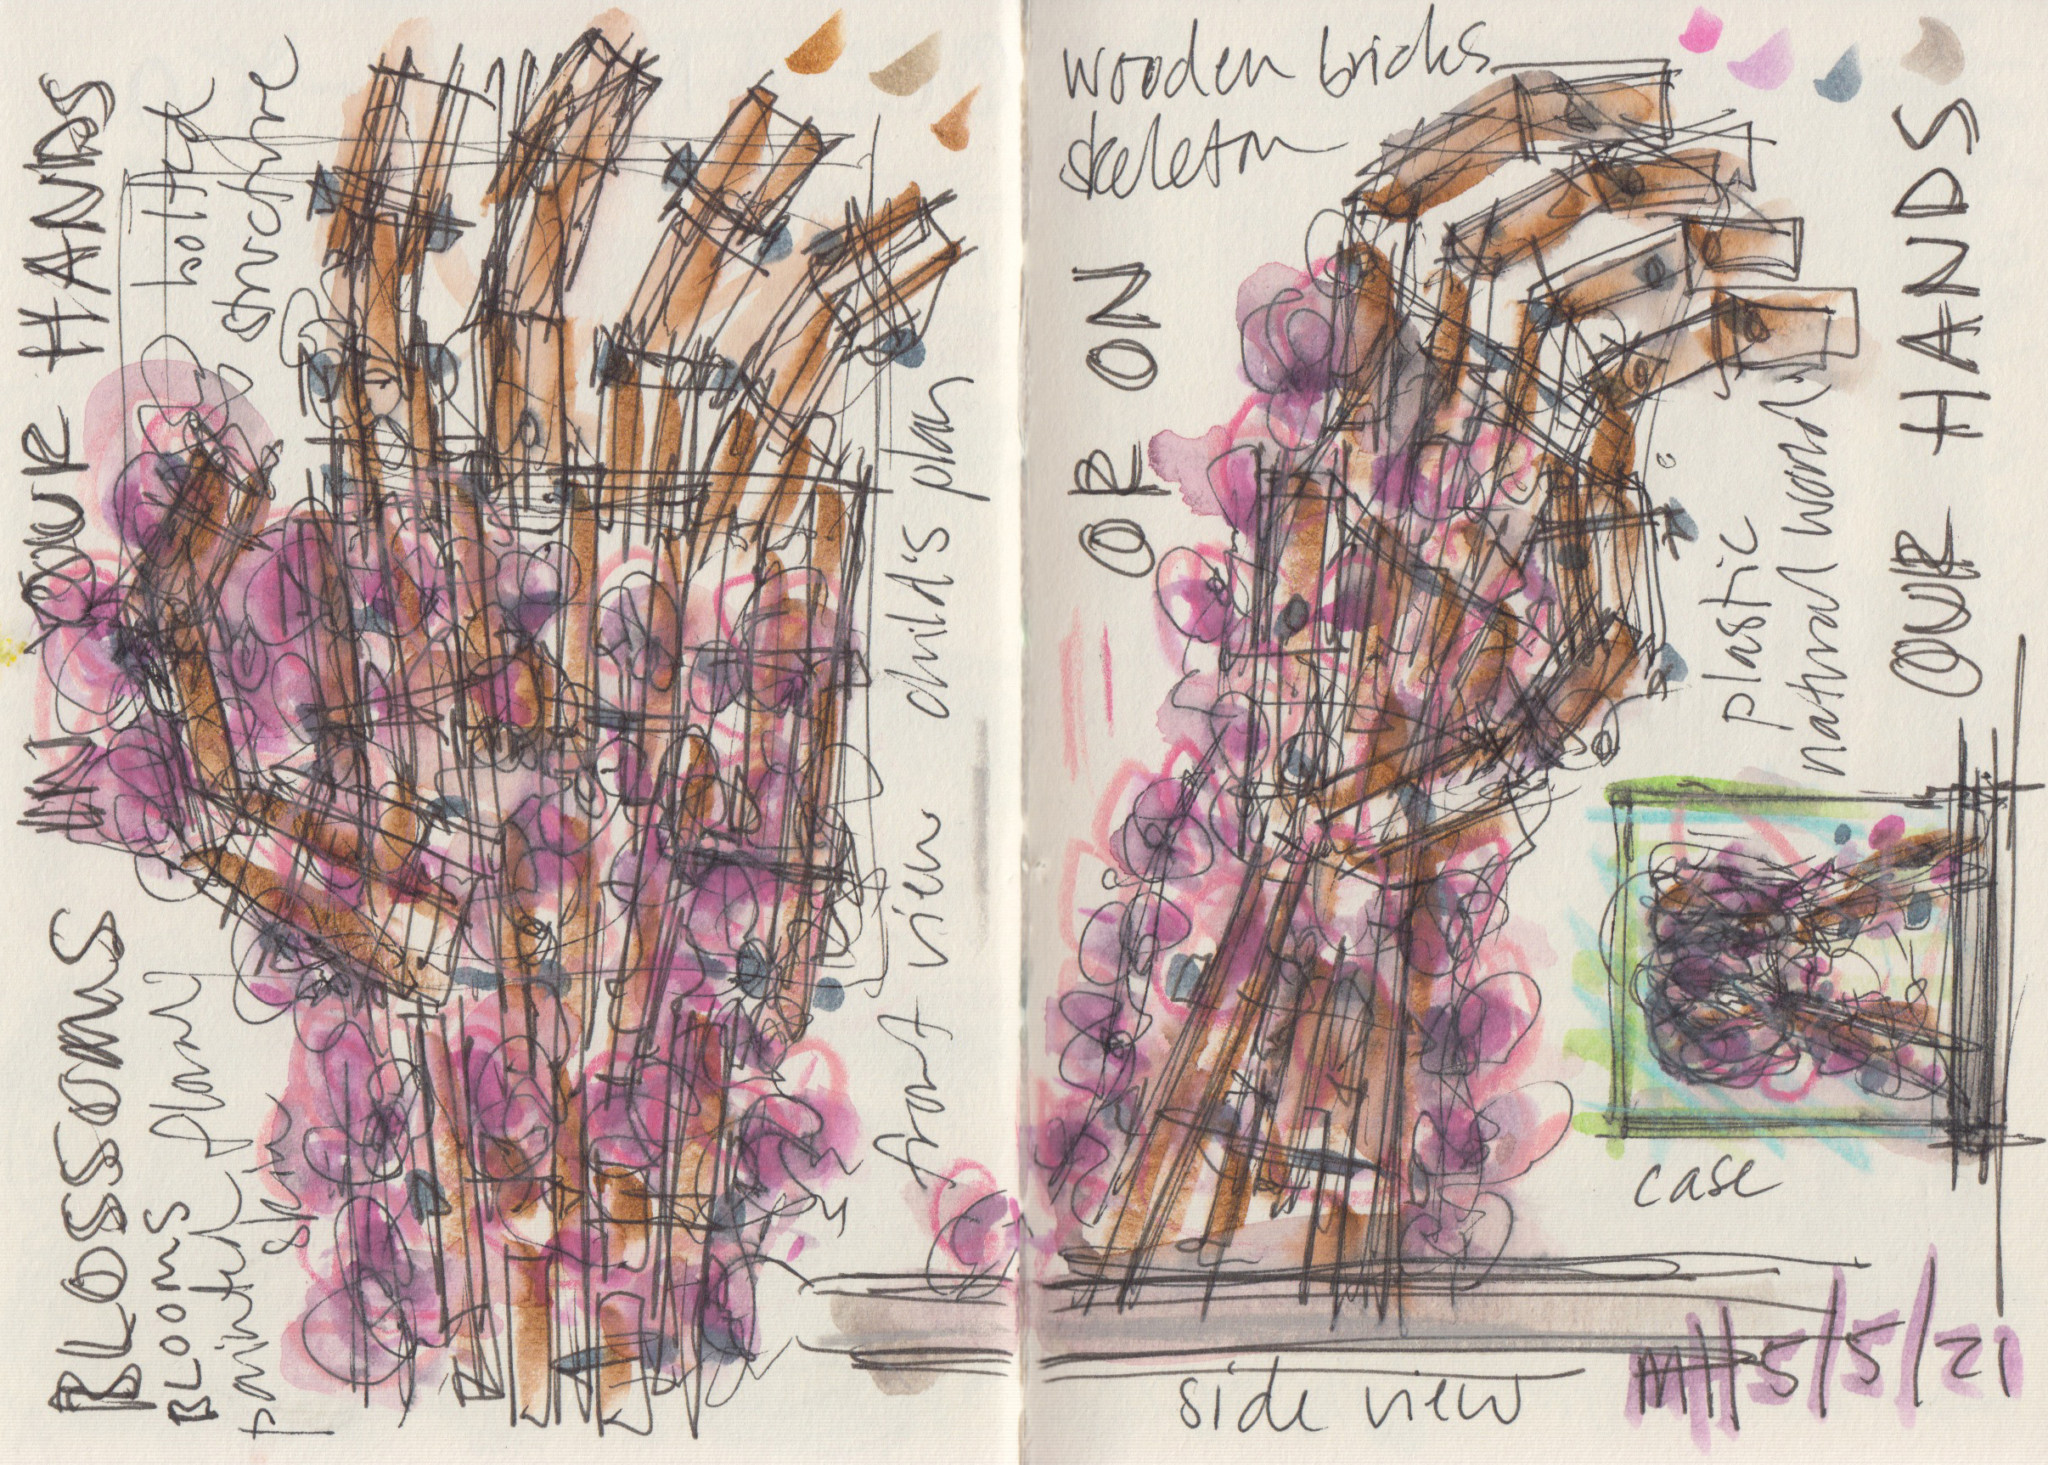 BLOSSOMS IN OUR HANDS
BLOOMS
painted
skin
bolted
structure
child's play
front view
wooden bricks
skeleton
OR ON
OUR HANDS
plastic
natural world
case
side view
MH 5/5/21